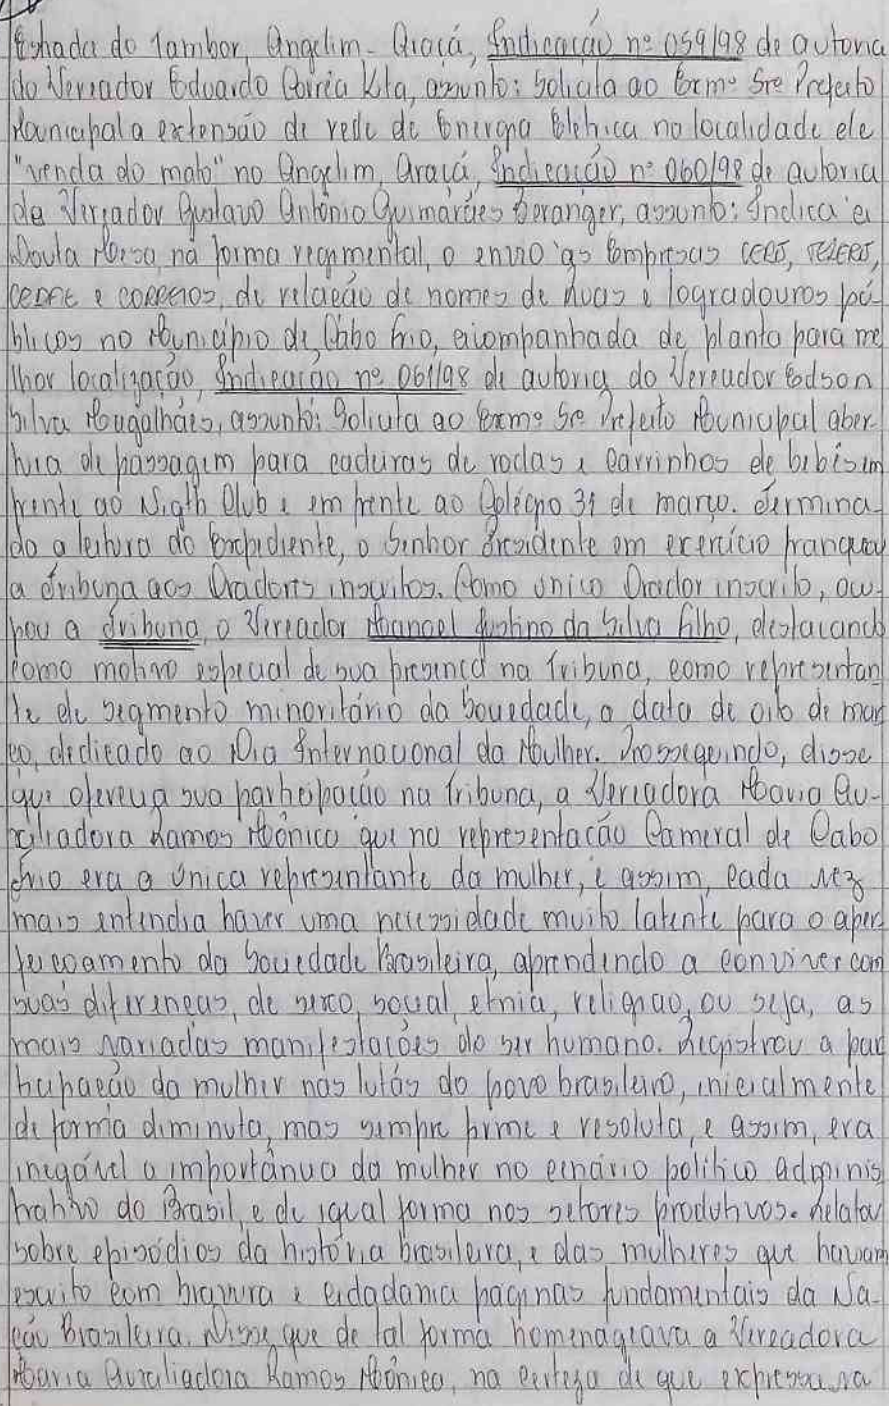 Estrada do Tambor, Angelim - Araçá, Indicação nº 059/98 de autoria
do Vereador Eduardo Corrêa Kita, assunto: Solicita ao Exmº Sre Prefeito
Municipal a extensão de rede de Energia Elétrica na localidade de
"venda do mato" no Angelim, Araçá, Indicação nº 060/98 de autoria
de Vereador Gustavo Antônio Guimarães Beranger, assunto: Indica à
Douta Mesa, na forma regimental, o envio às Empresas CERJ, TELERJ,
CEDAE e CORREIOS, de relação de nomes de Ruas e logradouros pú-
blicos no Município de Cabo Frio, acompanhada de planta para me
lhor localização, Indicação nº 061/98 de autoria do Vereador Edson
Silva Magalhães, assunto: Solicita ao Exmº Sr Prefeito Municipal aber
tura de passagem para cadeiras de rodas e Carrinhos de bebês em
frente ao Nigth Club e em frente ao Colégio 31 de março. Termina-
do a leitura do Expediente, o Senhor Presidente em exercício franqueou
a Tribuna aos Oradores inscritos. Como único Orador inscrito, ocu-
pou a Tribuna, o Vereador Manoel Justino da Silva Filho, destacando
como motivo especial de sua presença na Tribuna, como representan
te de segmento minoritário da Sociedade, a data de oito de mar
ço, dedicado ao Dia Internacional da Mulher. Prosseguindo, disse
que oferecia sua participação na Tribuna, a Vereadora Maria Au-
xiliadora Ramos Mônica que na representação Cameral de Cabo
Frio era a única representante da mulher, e assim, cada vez
mais entendia haver uma necessidade muito latente para o aper
feiçoamento da Sociedade Brasileira, aprendendo a conviver com
suas diferenças, de sexo, social, etnia, religião, ou seja, as
mais variadas manifestações do ser humano. Registrou a par
ticipação da mulher nas lutas do povo brasileiro, inicialmente
de forma diminuta, mas sempre firme e resoluta, e assim, era
inegável a importância da mulher no cenário político adminis
trativo do Brasil, e de igual forma nos setores produtivos. Relatou
sobre episódios da história brasileira, e das mulheres que haviam
escrito com bravura e cidadania páginas fundamentais da Na-
ção Brasileira. Disse que de tal forma homenageava a Vereadora
Maria Auxiliadora Ramos Mônica, na certeza de que expressava